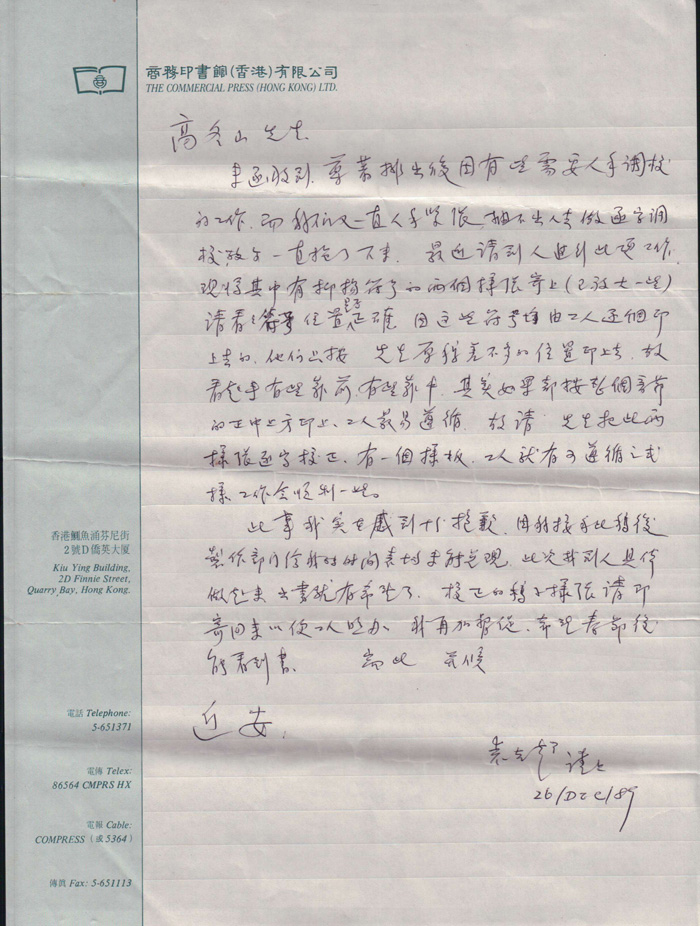 商務印書館(香港)有限公司
THE COMMERCIAL PRESS (HONG KONG) LTD.
高冬山先生
來函收到，尊著排出後因有些需要人手調校
的工作，而我们又一直人手紧張，抽不出人去做逐字調
校，故令一直拖了下来。最近請到人進行此項工作，
現将其中有抑揚符号的兩個樣張寄上(已放大一些)
請看看符号位置是否正確。因这些符号均由工人逐個印
上去的，他们只按 先生原稿差不多的位置印上去，故
看起來有些靠前，有些靠中，其实如果都按整個音節
的正中上方印上，工人較易遵循，故請 先生把此兩
樣張逐字校正，有一個樣板，工人就有可遵循之式
樣，工作会順利一些。
此事我实在感到十分抱歉，因我接手此稿後
製作部门给我的时间表均未能兑现，此次找到人具体
做起来，出書就有希望了。校正的稿子樣張請即
寄回来以便工人照办，我再加督促，希望春節後
能看到書。 耑此 并候
近安，
謹上
26/Dec/89
香港鰂魚涌芬尼街
2號D僑英大廈
Kiu Ying Building,
2D Finnie Street,
Quarry Bay, Hong Kong.
電話 Telephone:
5-651371
電傳 Telex:
86564 CMPRS HX
電報 Cable:
COMPRESS (或 5364)
傳眞 Fax: 5-651113